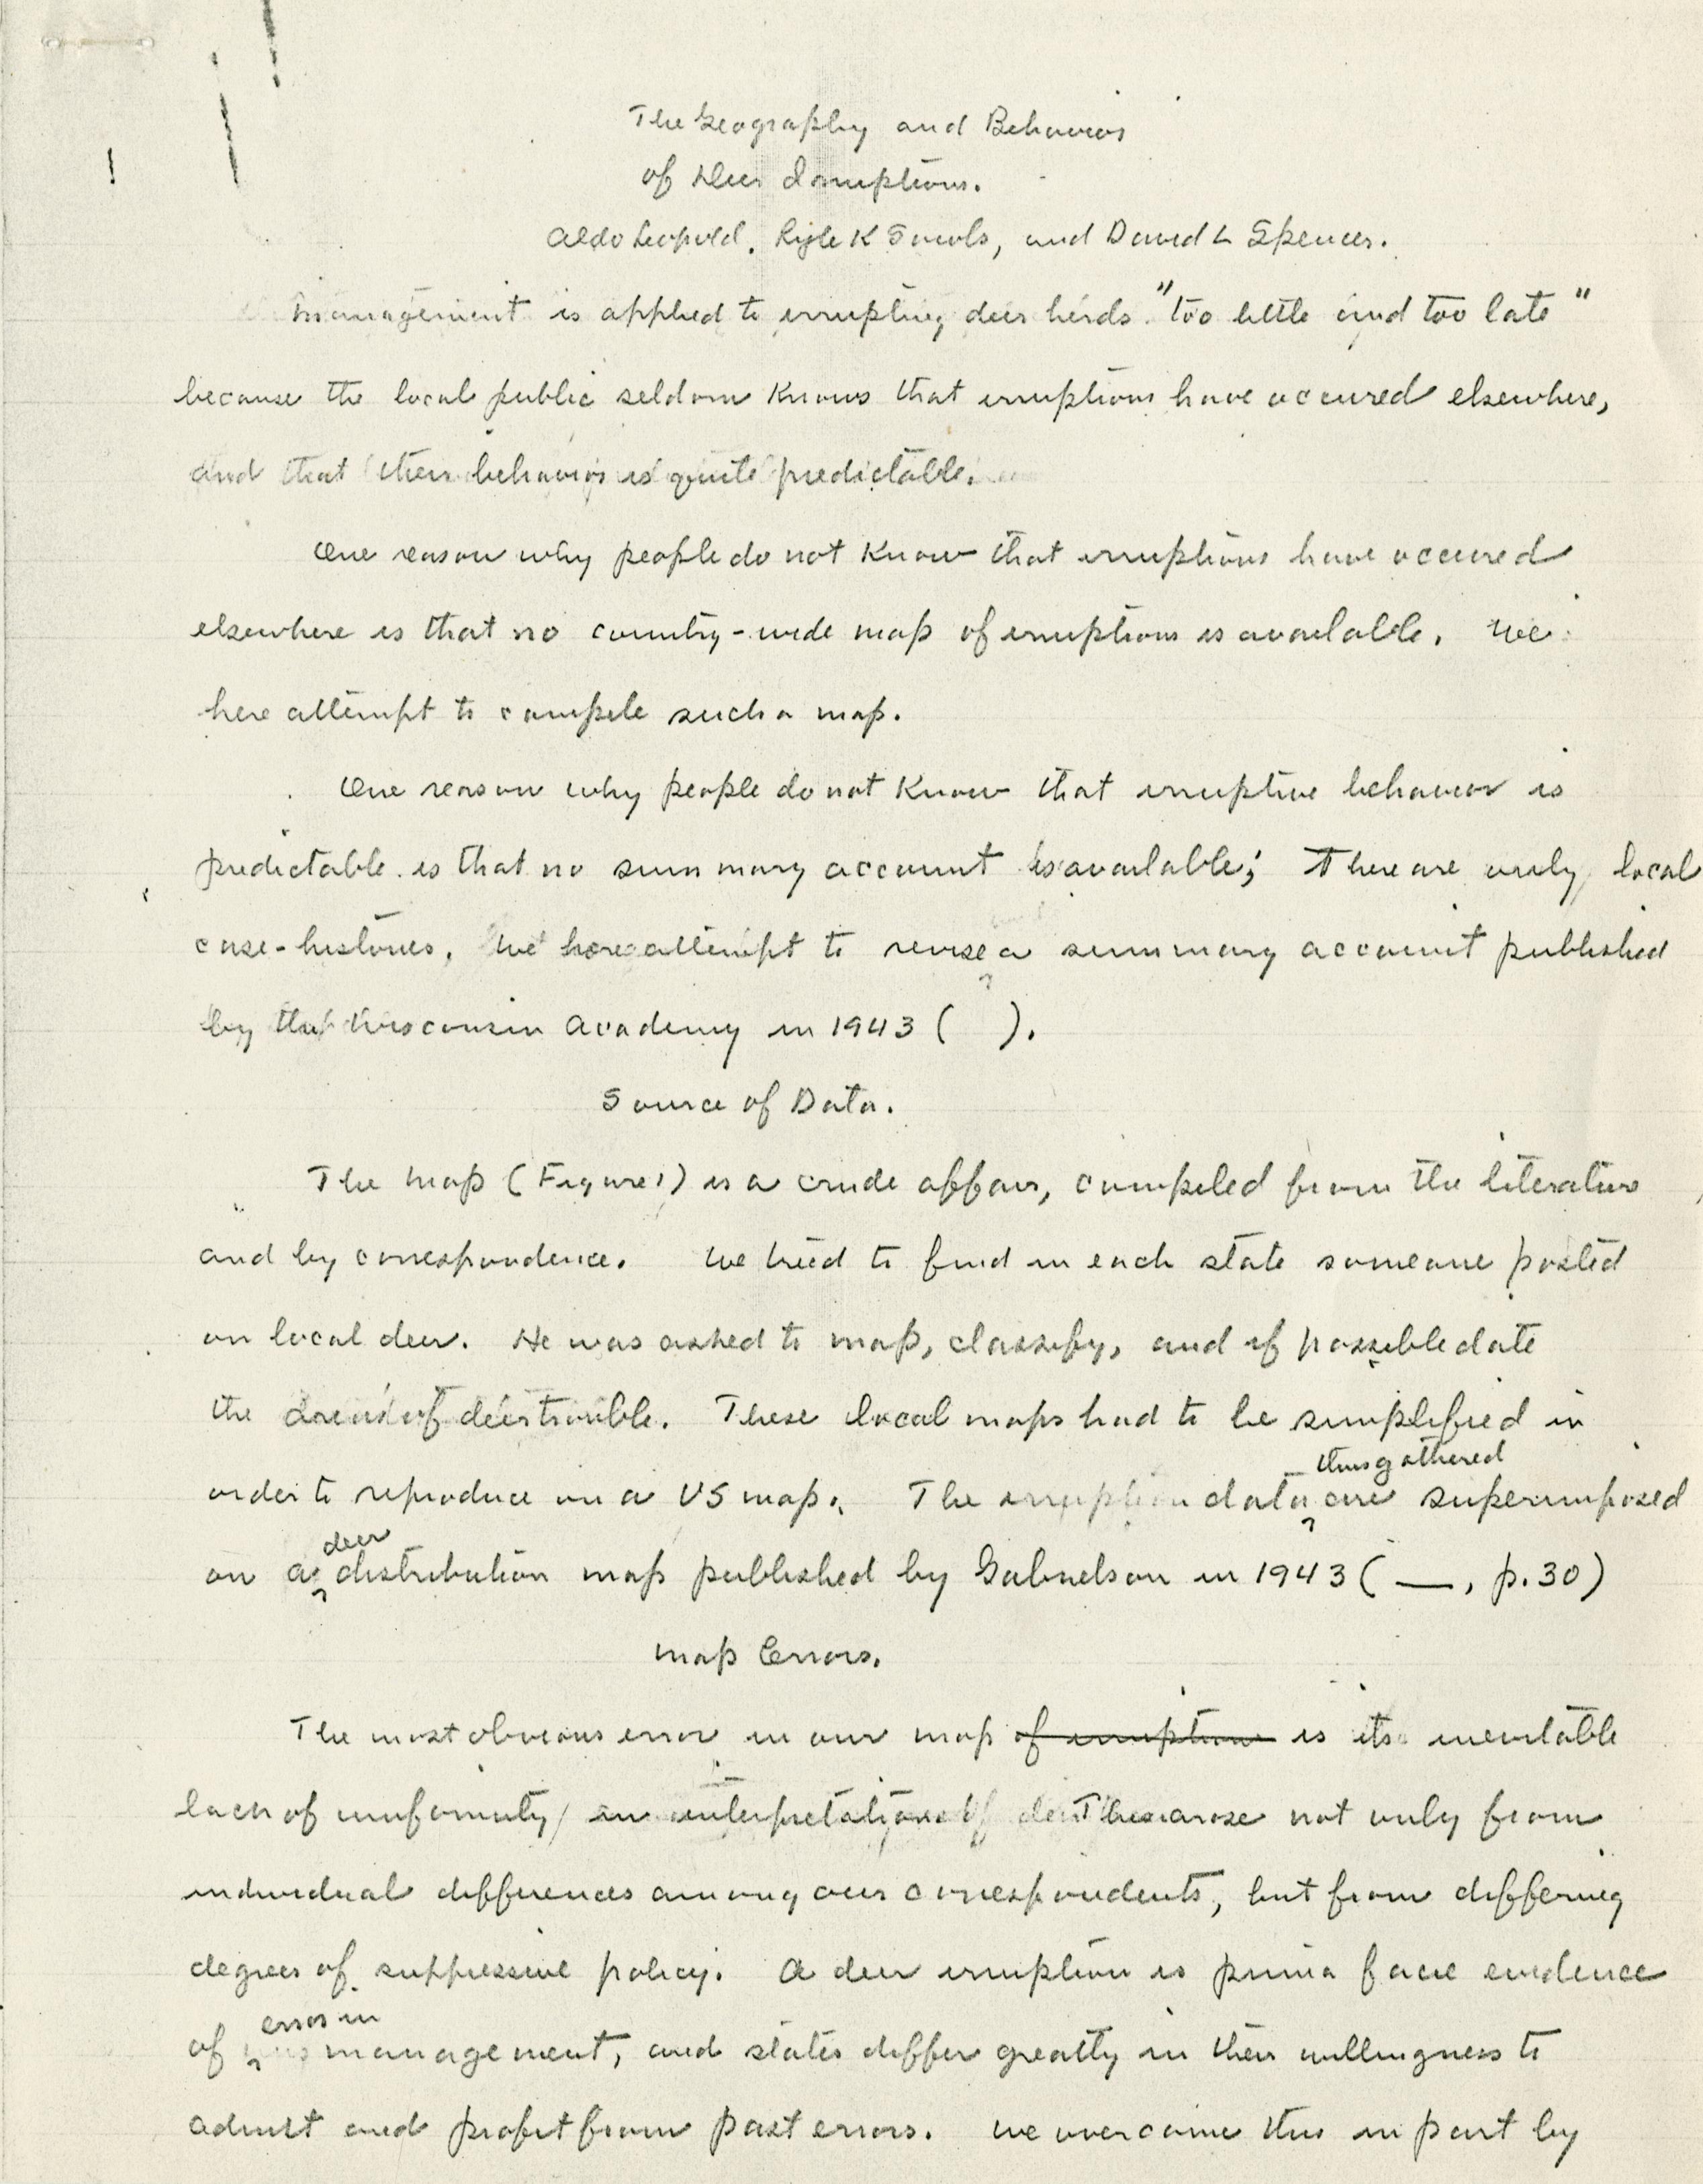 The Geography and Behavior
of Deer Irruptions.
Aldo Leopold, Lyle K Sowls, and David L Spencer.
Management is applied to irrupting deer herds "too little and too late"
because the local public seldom knows that irruptions have occured elsewhere,
and that their behavior is quite predictable.
One reason why people do not know that irruptions have occured
elsewhere is that no country-wide map of irruptions is available. We
here attempt to compile such a map.
One reason why people do not know that irruptive behavior is
predictable is that no summary account is available; There are only local
case-histories. We here attempt to revise a summary account published
by the Wisconsin Academy in 1943 ( ).
Source of Data.
The map (Figure 1) is a crude affair, compiled from the literature
and by correspondence. We tried to find in each state someone posted
on local deer. He was asked to map, classify, and if possible date
the areas of deer trouble. These local maps had to be simplified in
order to reproduce on a US map. The irruption data thus gathered are superimposed
on a deer distribution map published by Gabrielson in 1943 ( __, p. 30)
Map Errors.
The most obvious error in our map of irruptions is its inevitable
lack of uniformity in interpretation of This arose not only from
individual differences among our correspondents, but from differing
degrees of suppressive policy. A deer irruption is prima facie evidence
of error in management, and states differ greatly in their willingness to
admit and profit from past errors. We overcame this in part by